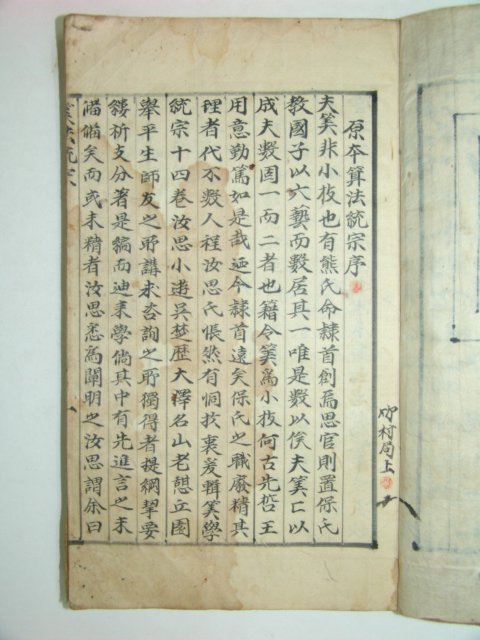 原本算法統宗序
夫筭非小技也有熊氏命隷首創焉思官則置保氏
教國子以六藝而數居其一唯是數以俟夫筭亡以
成夫數固一而二者也籍令筭爲小技何古先哲王
用意勤篤如是哉迺今隷首遠矣保氏之職廢精其
理者代不數人程汝思氏悵然有恫於裏爰輯筭學
統宗十四卷汝思小遊吳楚歷大澤名山老憇丘園
舉平生師友之所講求咨詢之所獨得者提綱挈要
縷析支分著是編而迪來學倘其中有先進言之未
備偹矣而或未精者汝思悉爲闡明之汝思謂余曰
筭法統宗
村局上